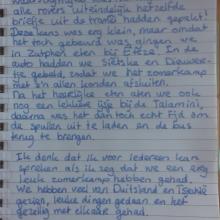 alle rovers uiteindelijk hetzelfde
briefje uit de trommel hadden gepakt!
Deze kans was erg klein, maar omdat
het toch gebeurd was gingen we
in Zutphen eten bij Efeze. In de
auto hadden we Sietske en Dieuwer-
tje gebeld, zodat we het zomerkamp
met z'n allen konden afsluiten.
Na het heerlijke eten aten we ook
nog een lekkere ijsje bij de Talamini,
daarna was het dan toch echt tijd om
de spullen uit te laden en de bus
terug te brengen.
Ik denk dat ik voor iedereen kan
spreken als ik zeg dat we een erg
leuk zomerkamp hebben gehad.
We hebben veel van Duitsland en
gezien, leuke dingen gedaan en het
gezellig met elkaar gehad.